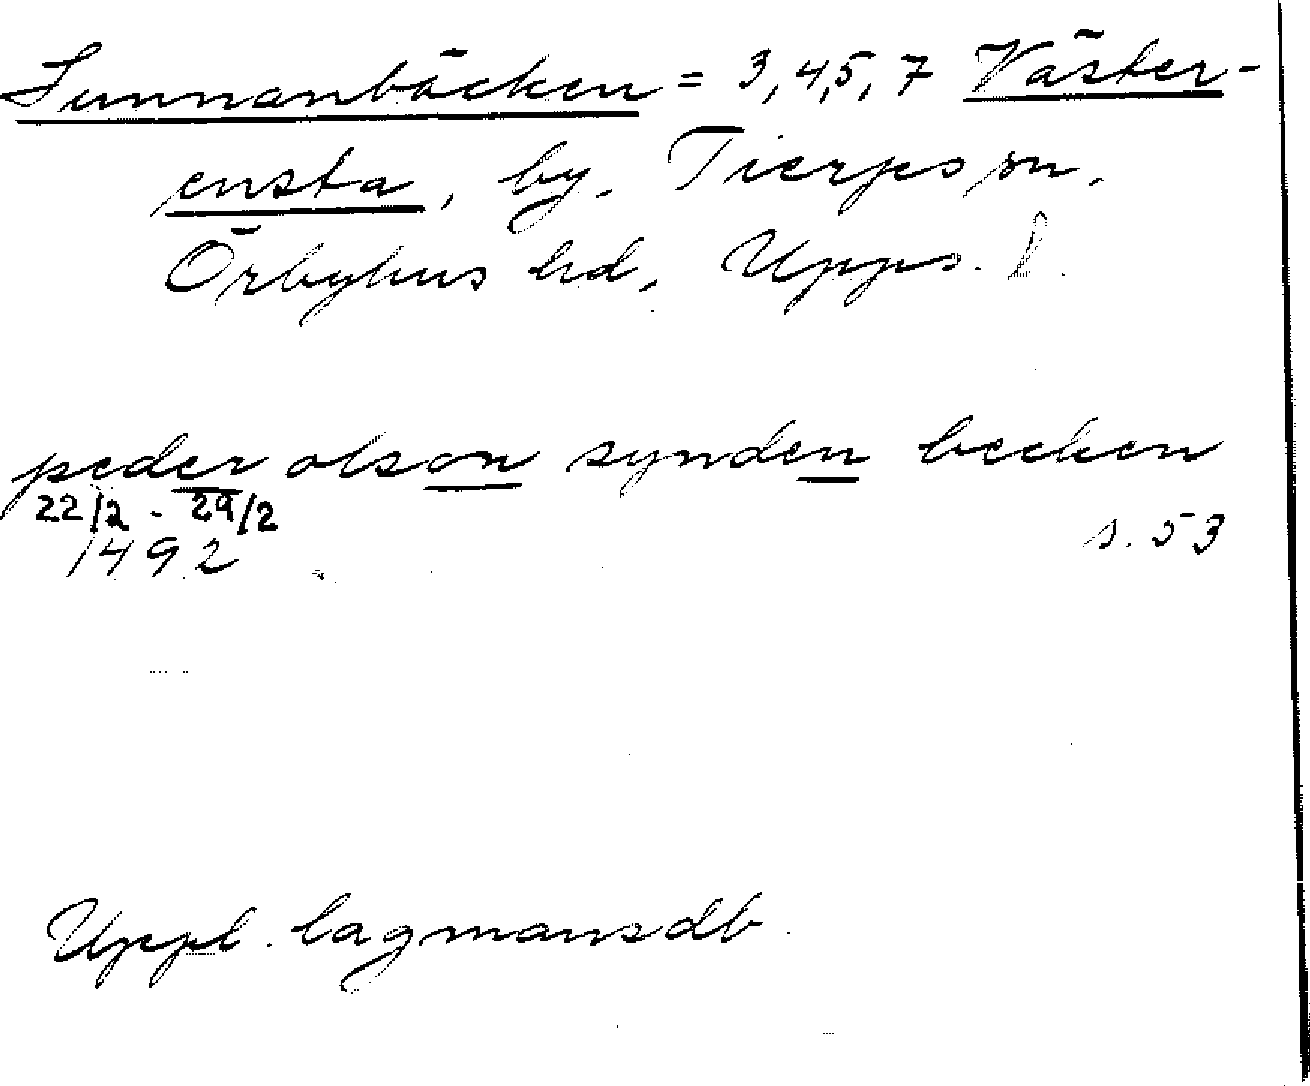 Sunnanbäcken = 3, 4, 5, 7 Väster-
ensta, by, Tierps sn,
Örbyhus hd, Upps. l.
peder olson synden becken
22/2 - 29/2
1492
s. 53
Uppl. lagmansdb